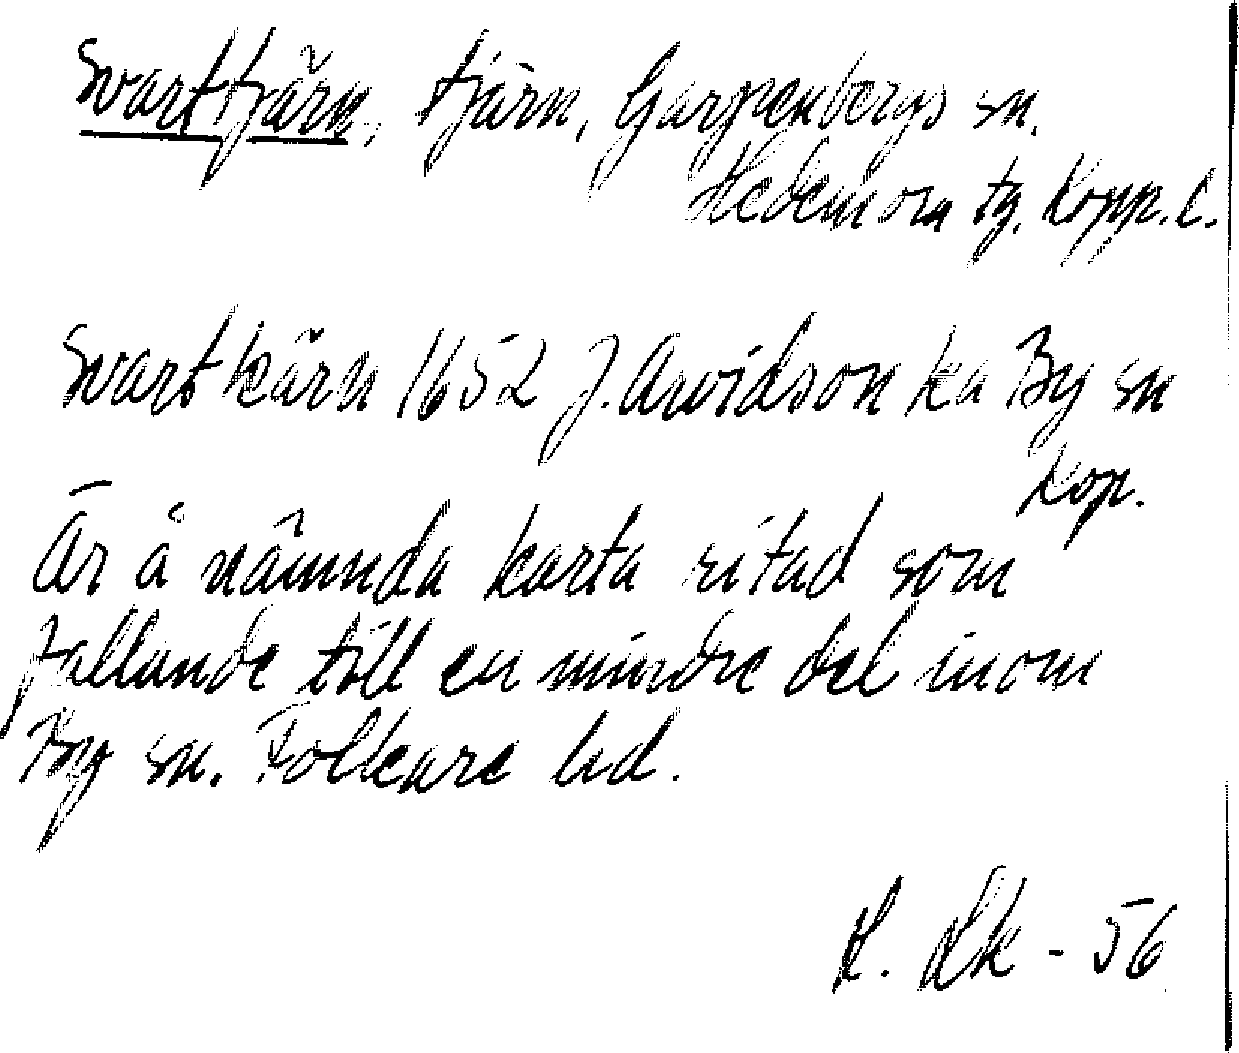 Svarttjärn, tjärn, Garpenbergs sn.
Hedemora tg. Kopp. l.
Svartkärn 1652 J. Arvidson ka By sn
Kop.
Är å nämnda karta ritad som
fallande till en mindre del inom
By sn. Folkare hd.
- 56